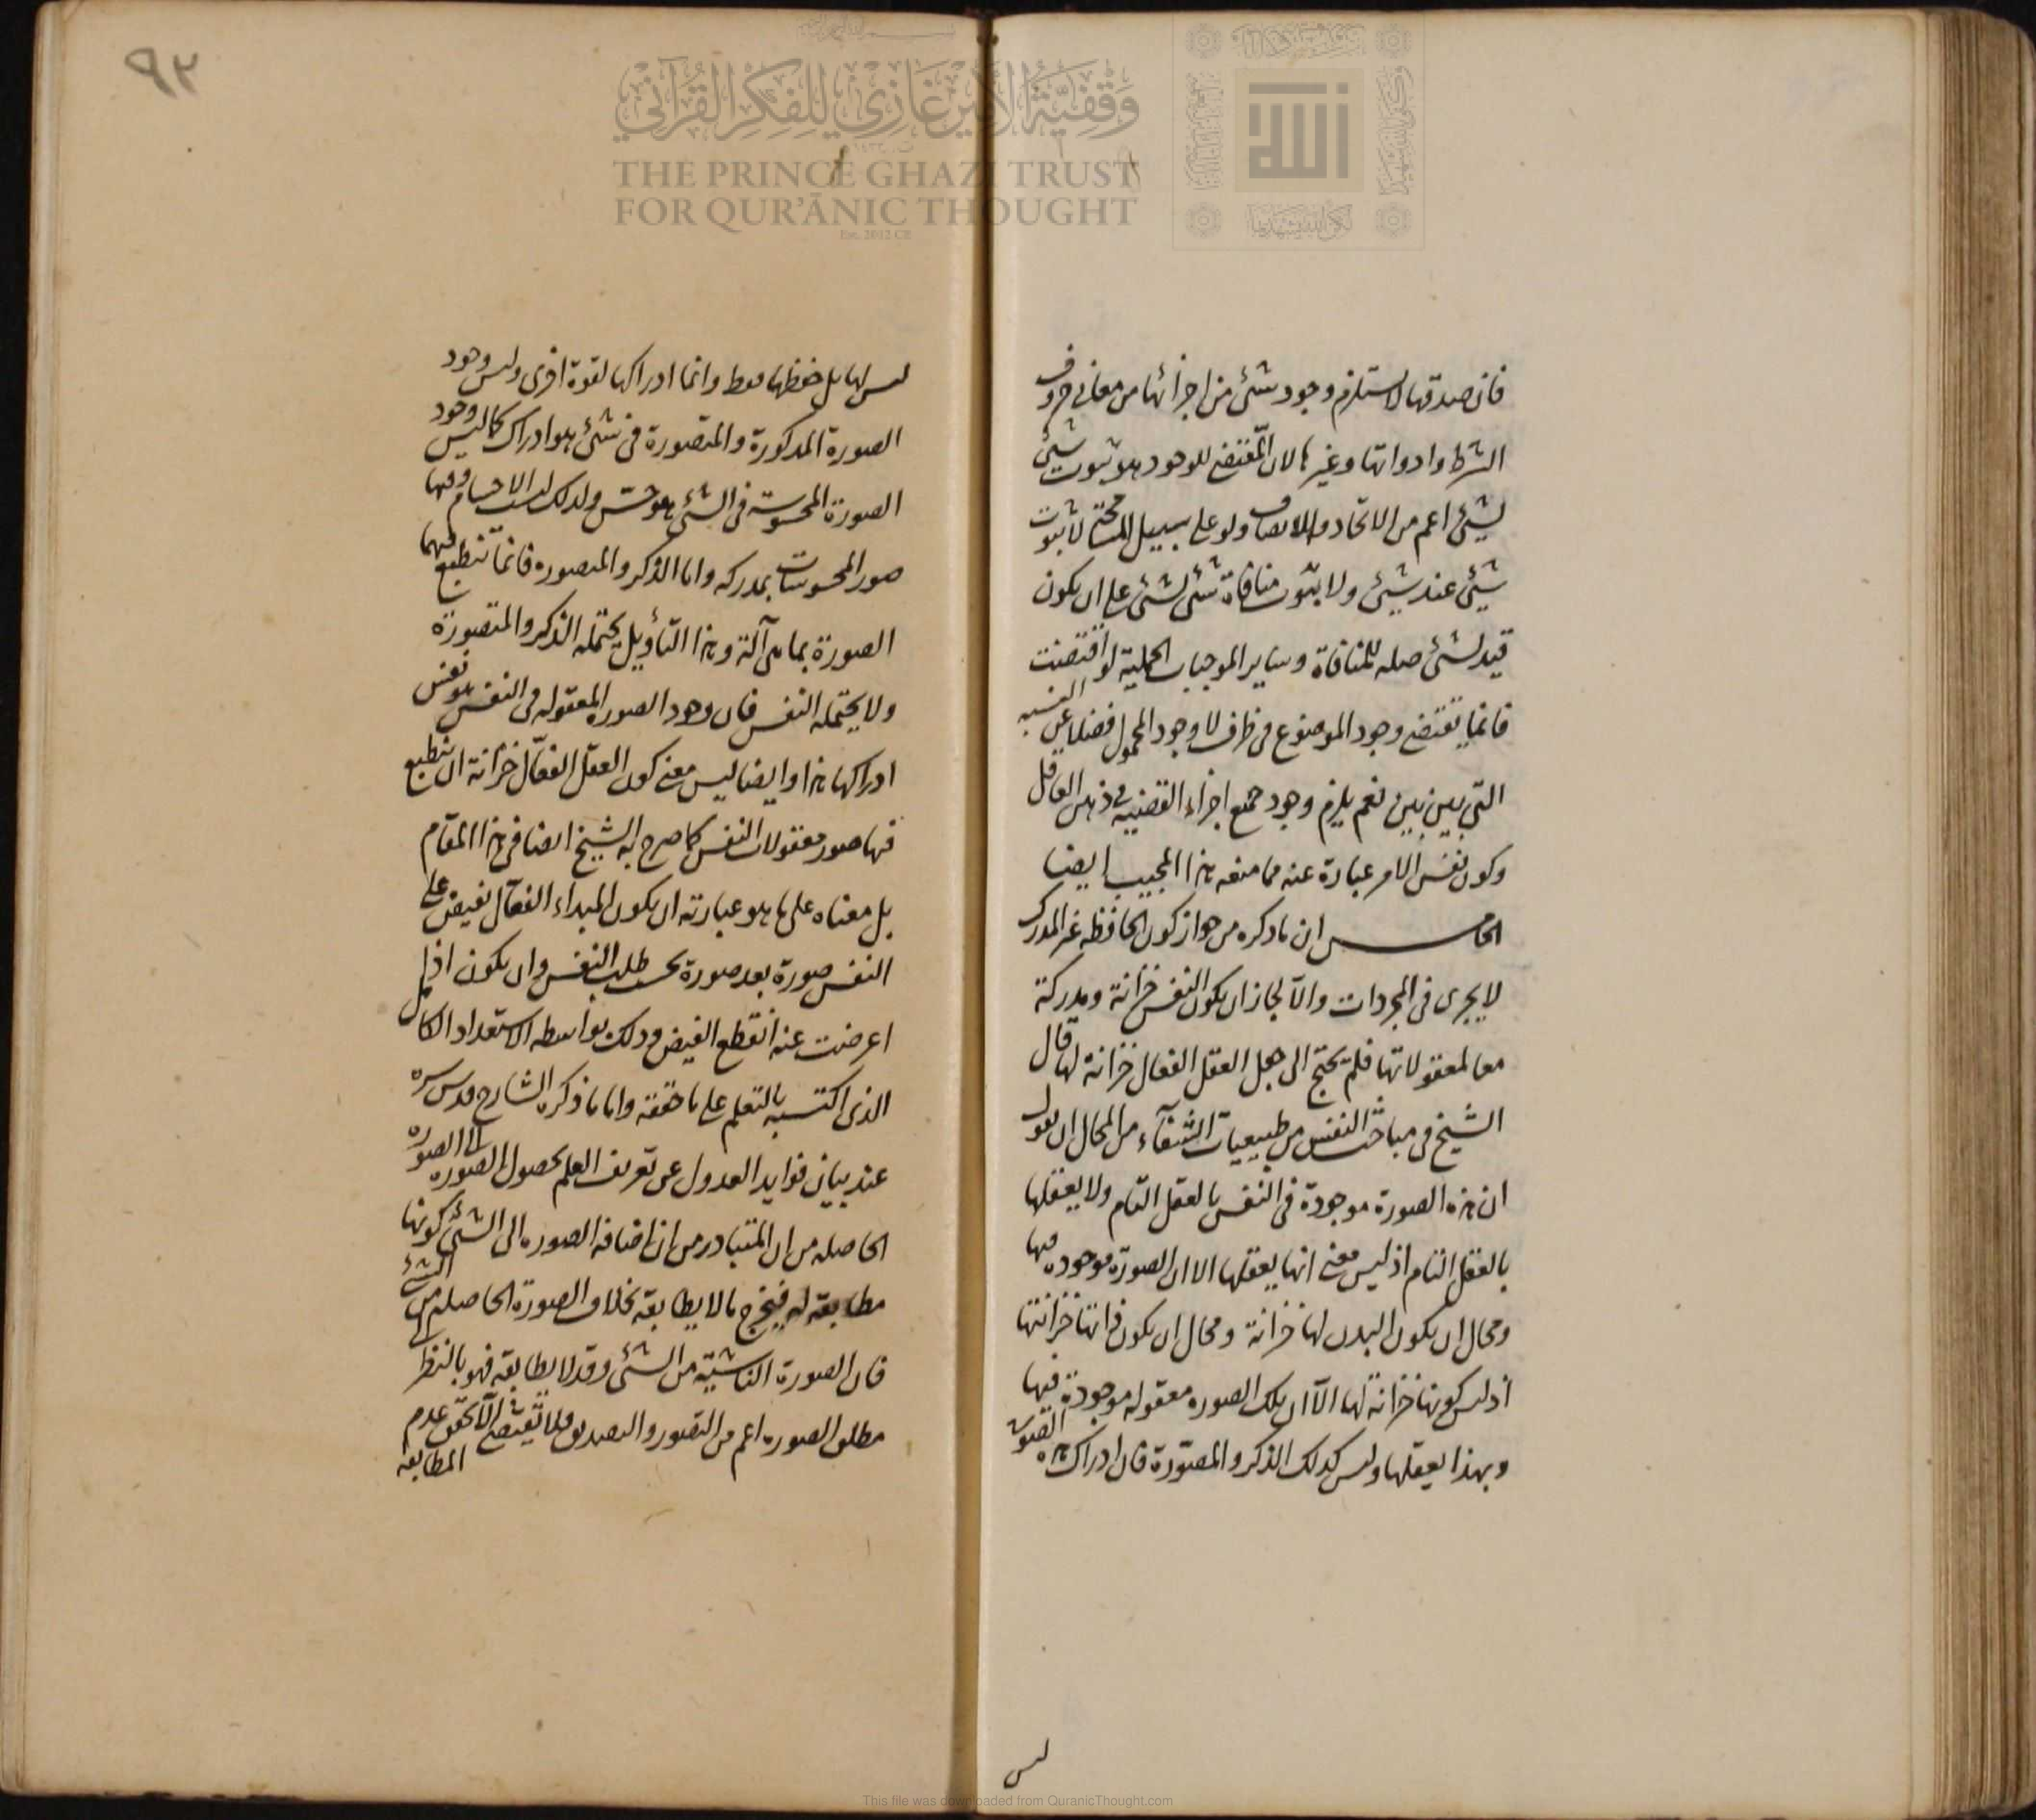 فان صدقها لا يستلزم وجود شئ من اجزائها من معانى حروف
الشرط وادواتها وغيرها لان المقتضى للوجود هو ثبوت شئ
لشئ اعم من الاتحاد والاتصاف ولو على سبيل المسامحة لا ثبوت
شيئ عند شيئ ولا ثبوت منافاة شئ لشئ على ان يكون
قيد لشئ صله للمنافاة وساير الموجبات الحملية لو اقتضت
فانما يقتضى وجود الموضوع فى ظرف لا وجود المحمول فضلا عن النسبه
التى بين بين نعم يلزم وجود جميع اجزاء القضيه فى ذهن العاقل
وكون نفس الامر عبارة عنه مما منعه هذا المجيب ايضا
الخامس ان ما ذكره من جواز كون الحافظه غير المدرك
لا يجرى فى المجردات والا لجاز ان يكون النفس خزانة ومدركة
معا لمعقولاتها فلم يحتج الى جعل العقل الفعال خزانة لها قال
الشيخ فى مباحث النفس من طبيعيات الشفاء من المحال ان نقول
ان هذه الصورة موجودة فى النفس بالعقل التام ولا يعقلها
بالعقل التام اذ ليس معنى انها يعقلها الا ان الصورة موجوده فيها
ومحال ان يكون البدن لها خزانة ومحال ان يكون ذاتها خزانتها
اذ ليس كونها خزانة لها الا ان تلك الصوره معقوله موجودة فيها
وبهذا يعقلها وليس كذلك الذكر والمصورة فان ادراك هذه الصورة
ليس
٩٢
ليس لها بل حفظها فقط وانما ادراكها لقوة اخرى وليس وجود
الصورة المذكورة والمتصورة فى شئ هو ادراك كما ليس وجود
الصورة المحسوسة فى الشئ هو حسّ ولذلك ليست الاجسام وفيها
صور المحسوسات بمدركه واما الذكر والمصوره فانما تنطبع فيهما
الصورة بما هى آلة وهذا التأويل يحتمله الذكر والمتصورة
ولا يحتمله النفس فان وجود الصورة المعقوله فى النفس هو نفس
ادراكها هذا وايضا ليس معنى كون العقل الفعال خزانة ان ينطبع
فيها صور معقولات النفس كما صرح به الشيخ ايضا فى هذا المقام
بل معناه على ما هو عبارته ان يكون المبداء الفعال يفيض على
النفس صورة بعد صورة بحسب طلب النفس وان يكون اذا
اعرضت عنه انقطع الفيض وذلك بواسطه الاستعداد الكامل
الذى اكتسبه بالتعلم على ما حققه واما ما ذكره الشارح قدس سره
عند بيان فوايد العدول عن تعريف العلم بحصول الصورة الى الصوره
الحاصله من ان المتبادر من ان اضافة الصوره الى الشئ كونها
مطابقة له فيخرج ما لا يطابقه بخلاف الصورة الحاصله من الشئ
فان الصورة الناشية من الشئ وقد لا يطابقه فهو بالنظر الى
مطلق الصوره اعم من التصور والتصديق فلا يقتضى الا تحقق عدم
المطابقة
وقفية الأمير غازي للفكر القرآني
THE PRINCE GHAZI TRUST
FOR QUR'ĀNIC THOUGHT
Est. 2012 CE
This file was downloaded from QuranicThought.com